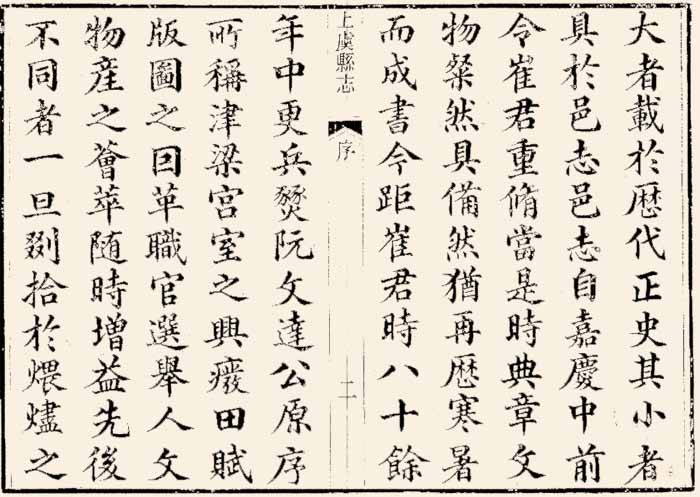 大者載於歷代正史其小者
具於邑志邑志自嘉慶中前
令崔君重脩當是時典章文
物粲然具備然猶再歷寒暑
而成書今距崔君時八十餘
上虞縣志
序
二
年中更兵燹阮文達公原序
所稱津梁宮室之興廢田賦
版圖之因革職官選舉人文
物產之薈萃隨時增益先後
不同者一旦掇拾於煨燼之